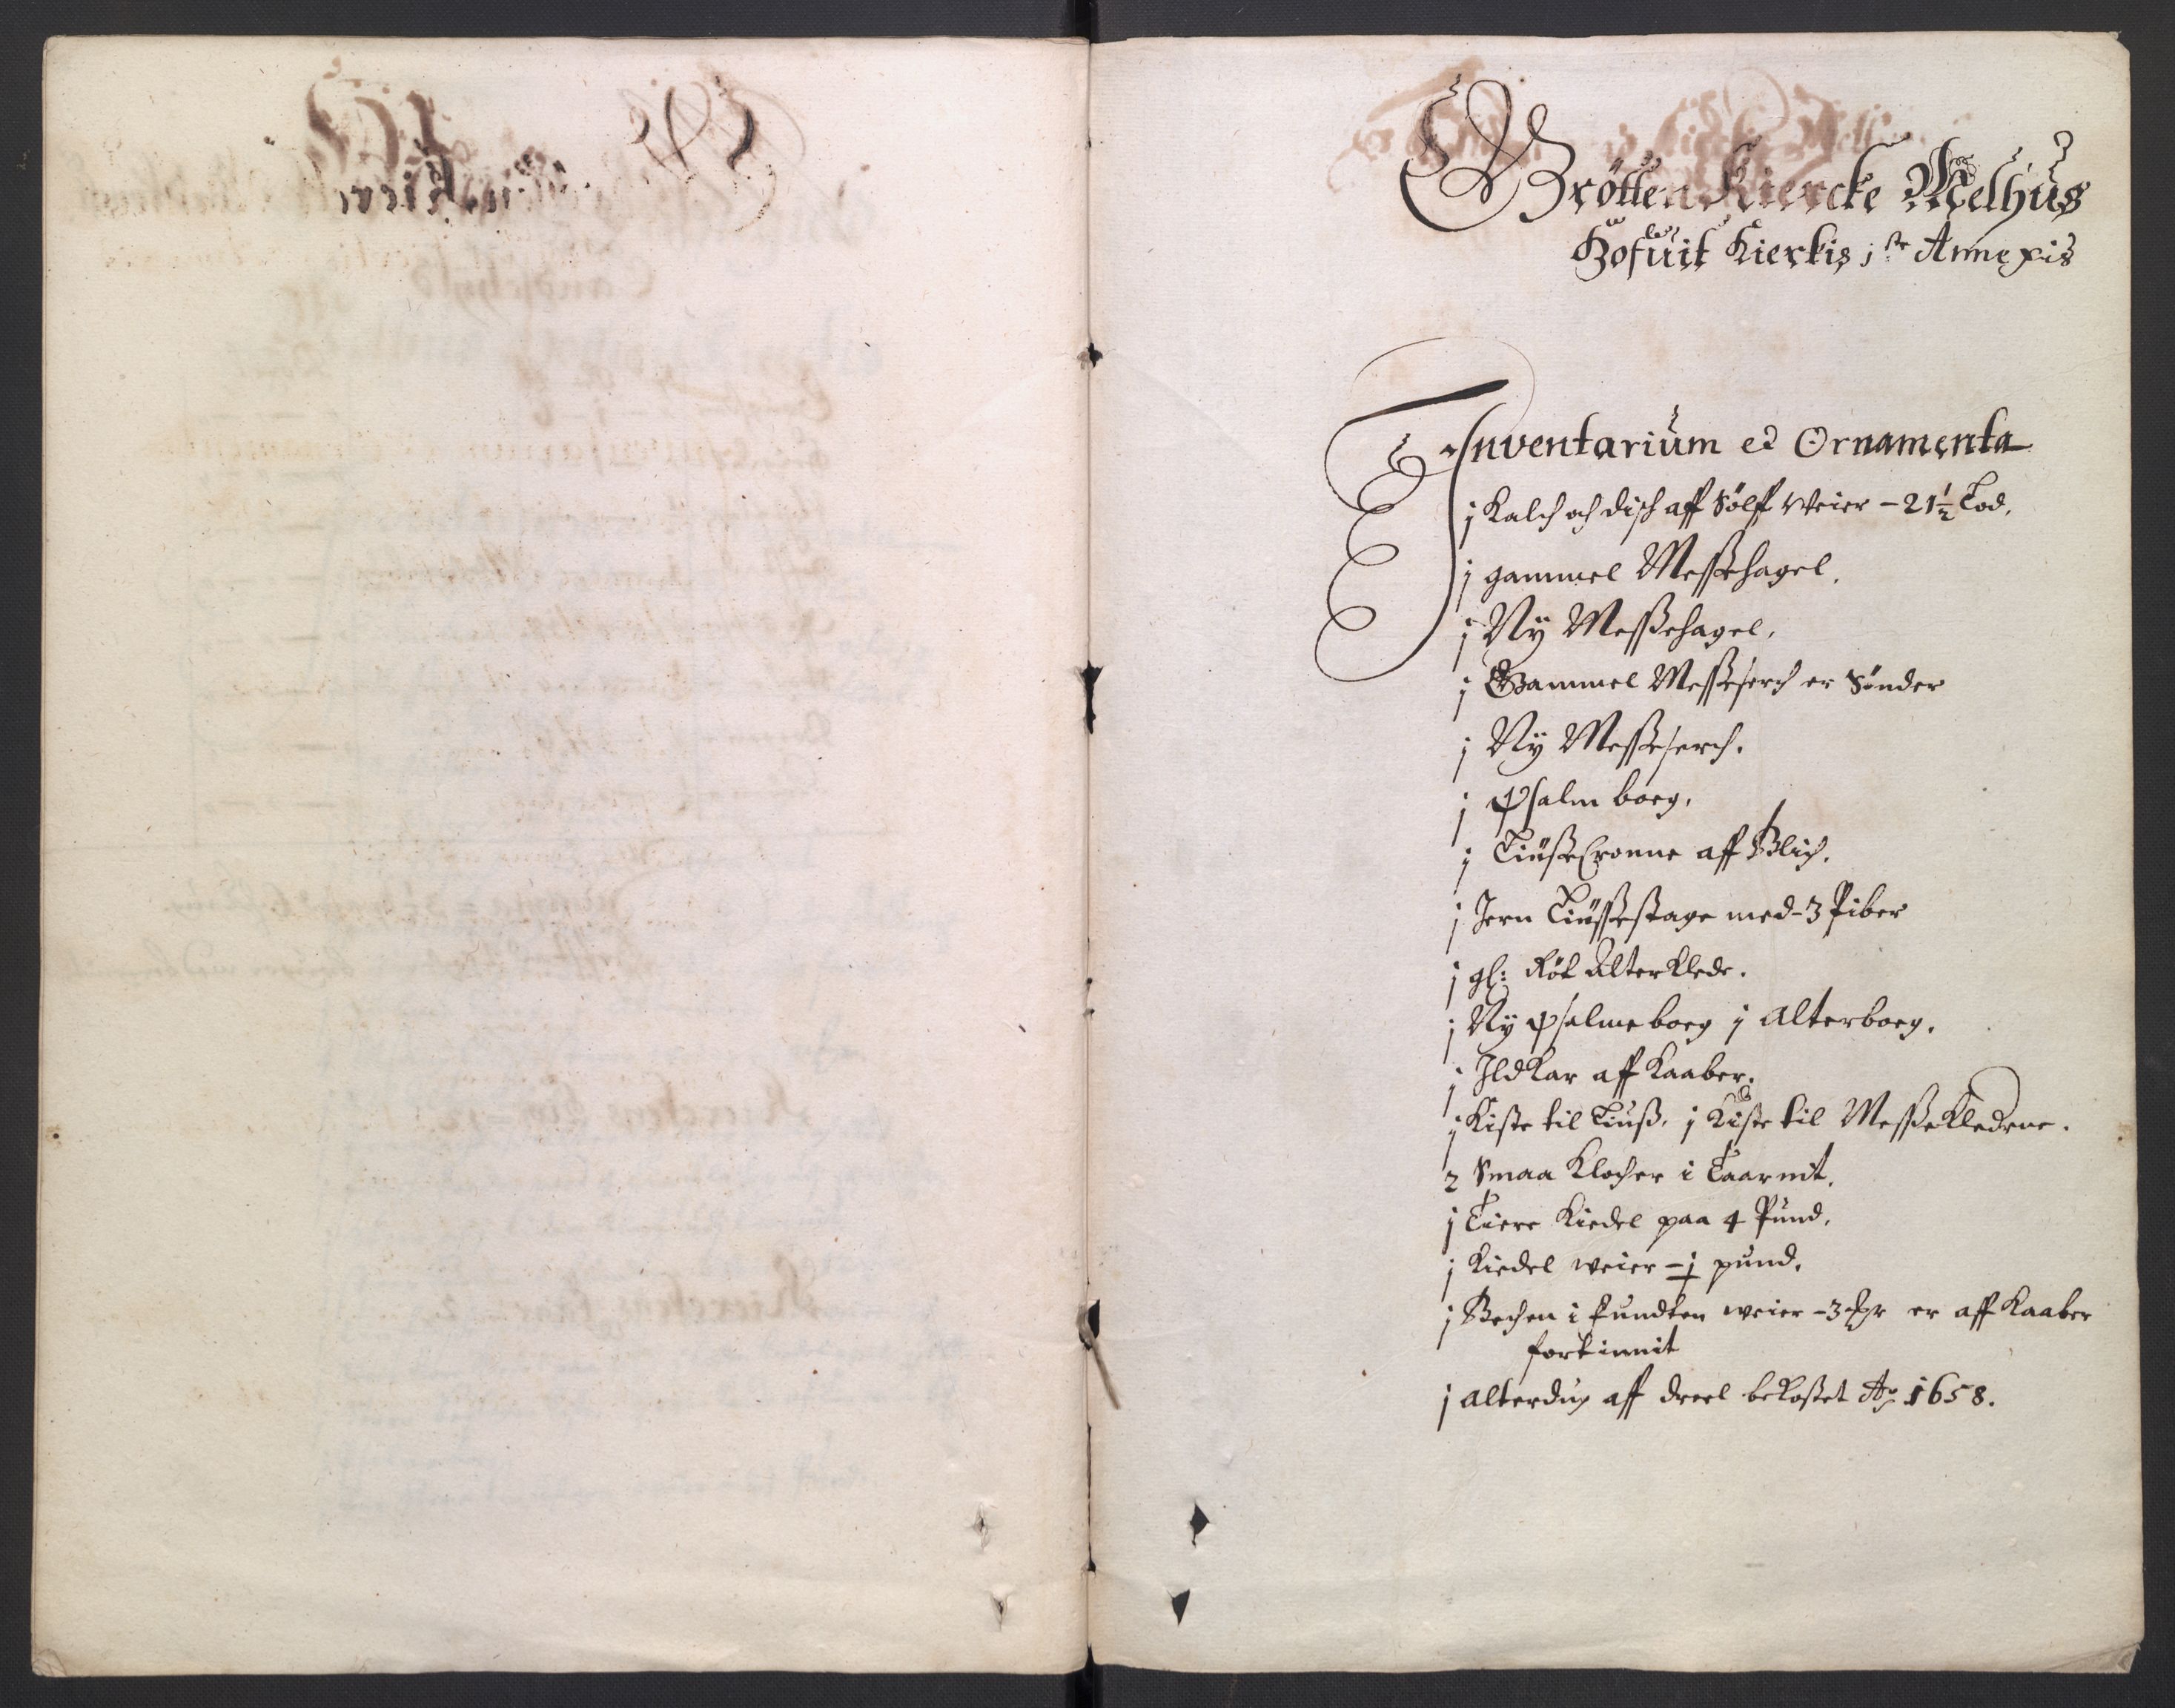 Grötten Kiercke Melhus
Hofuit Kierkis j ste Annexis
Inventarium et Ornamenta
j Kalch och disch aff Sölff weier - 21½ Lod.
j gammel Messehagel.
j Ny Messehagel.
j Gammel Messeserch er Sönder
j Ny Messeserch.
j Psalm boeg.
j LiusseCronne aff Blich.
j Jern Liussestage med - 3 Piber
j gl: Röt Alterklede.
j Ny Psalmeboeg j Alterboeg.
j Ildkar aff Kaaber.
j Kiste til Liuss. j Kiste til Messeklederne.
2 Smaa Klocher i Taarnit.
j Tiere Kiedel paa 4 Pund.
j Kiedel weier - j pund.
j Bechen i Fundten weier - 3 er aff Kaaber
fortinnit
j Alterdug aff dreel bekostet Ao 1658.